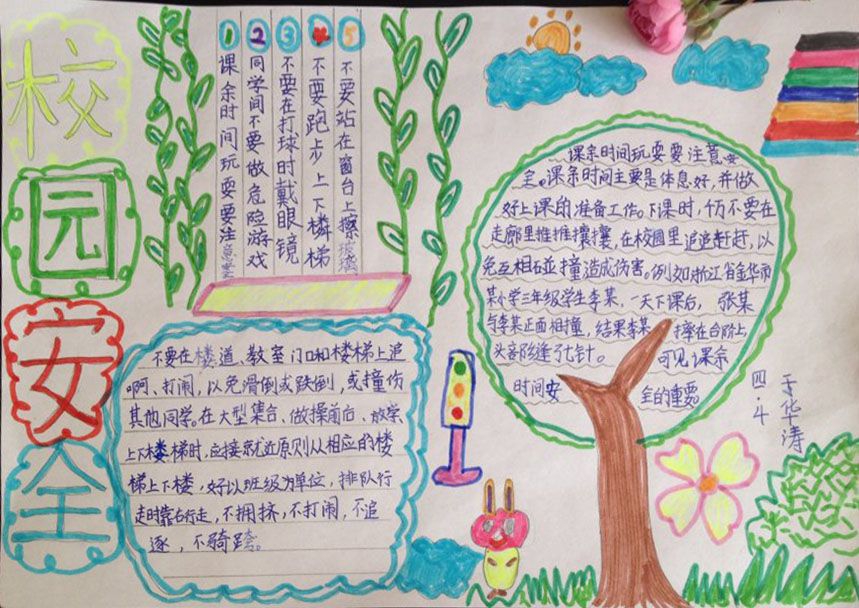 校
园
安
全
1 2 3 4 5
课余时间玩耍要注意安全
同学间不要做危险游戏
不要在打球时戴眼镜
不要跑步上下楼梯
不要站在窗台上擦玻璃
不要在楼道、教室门口和楼梯上追
啊、打闹，以免滑倒或跌倒，或撞伤
其他同学。在大型集合、做操前后、放学
上下楼梯时，应接就近原则从相应的楼
梯上下楼，好以班级为单位，排队行
走时靠右行走，不拥挤，不打闹，不追
逐，不骑跨。
课余时间玩耍要注意安
全。课余时间主要是体息好，并做
好上课的准备工作。下课时，千万不要在
走廊里推推攘攘，在校园里追追赶赶，以
免互相碰撞造成伤害。例如浙江省金华市
某小学三年级学生李某，一天下课后，张某
与李某正面相撞，结果李某摔在台阶上
头部缝了七针。可见课余
时间安全的重要
四.4
于华涛